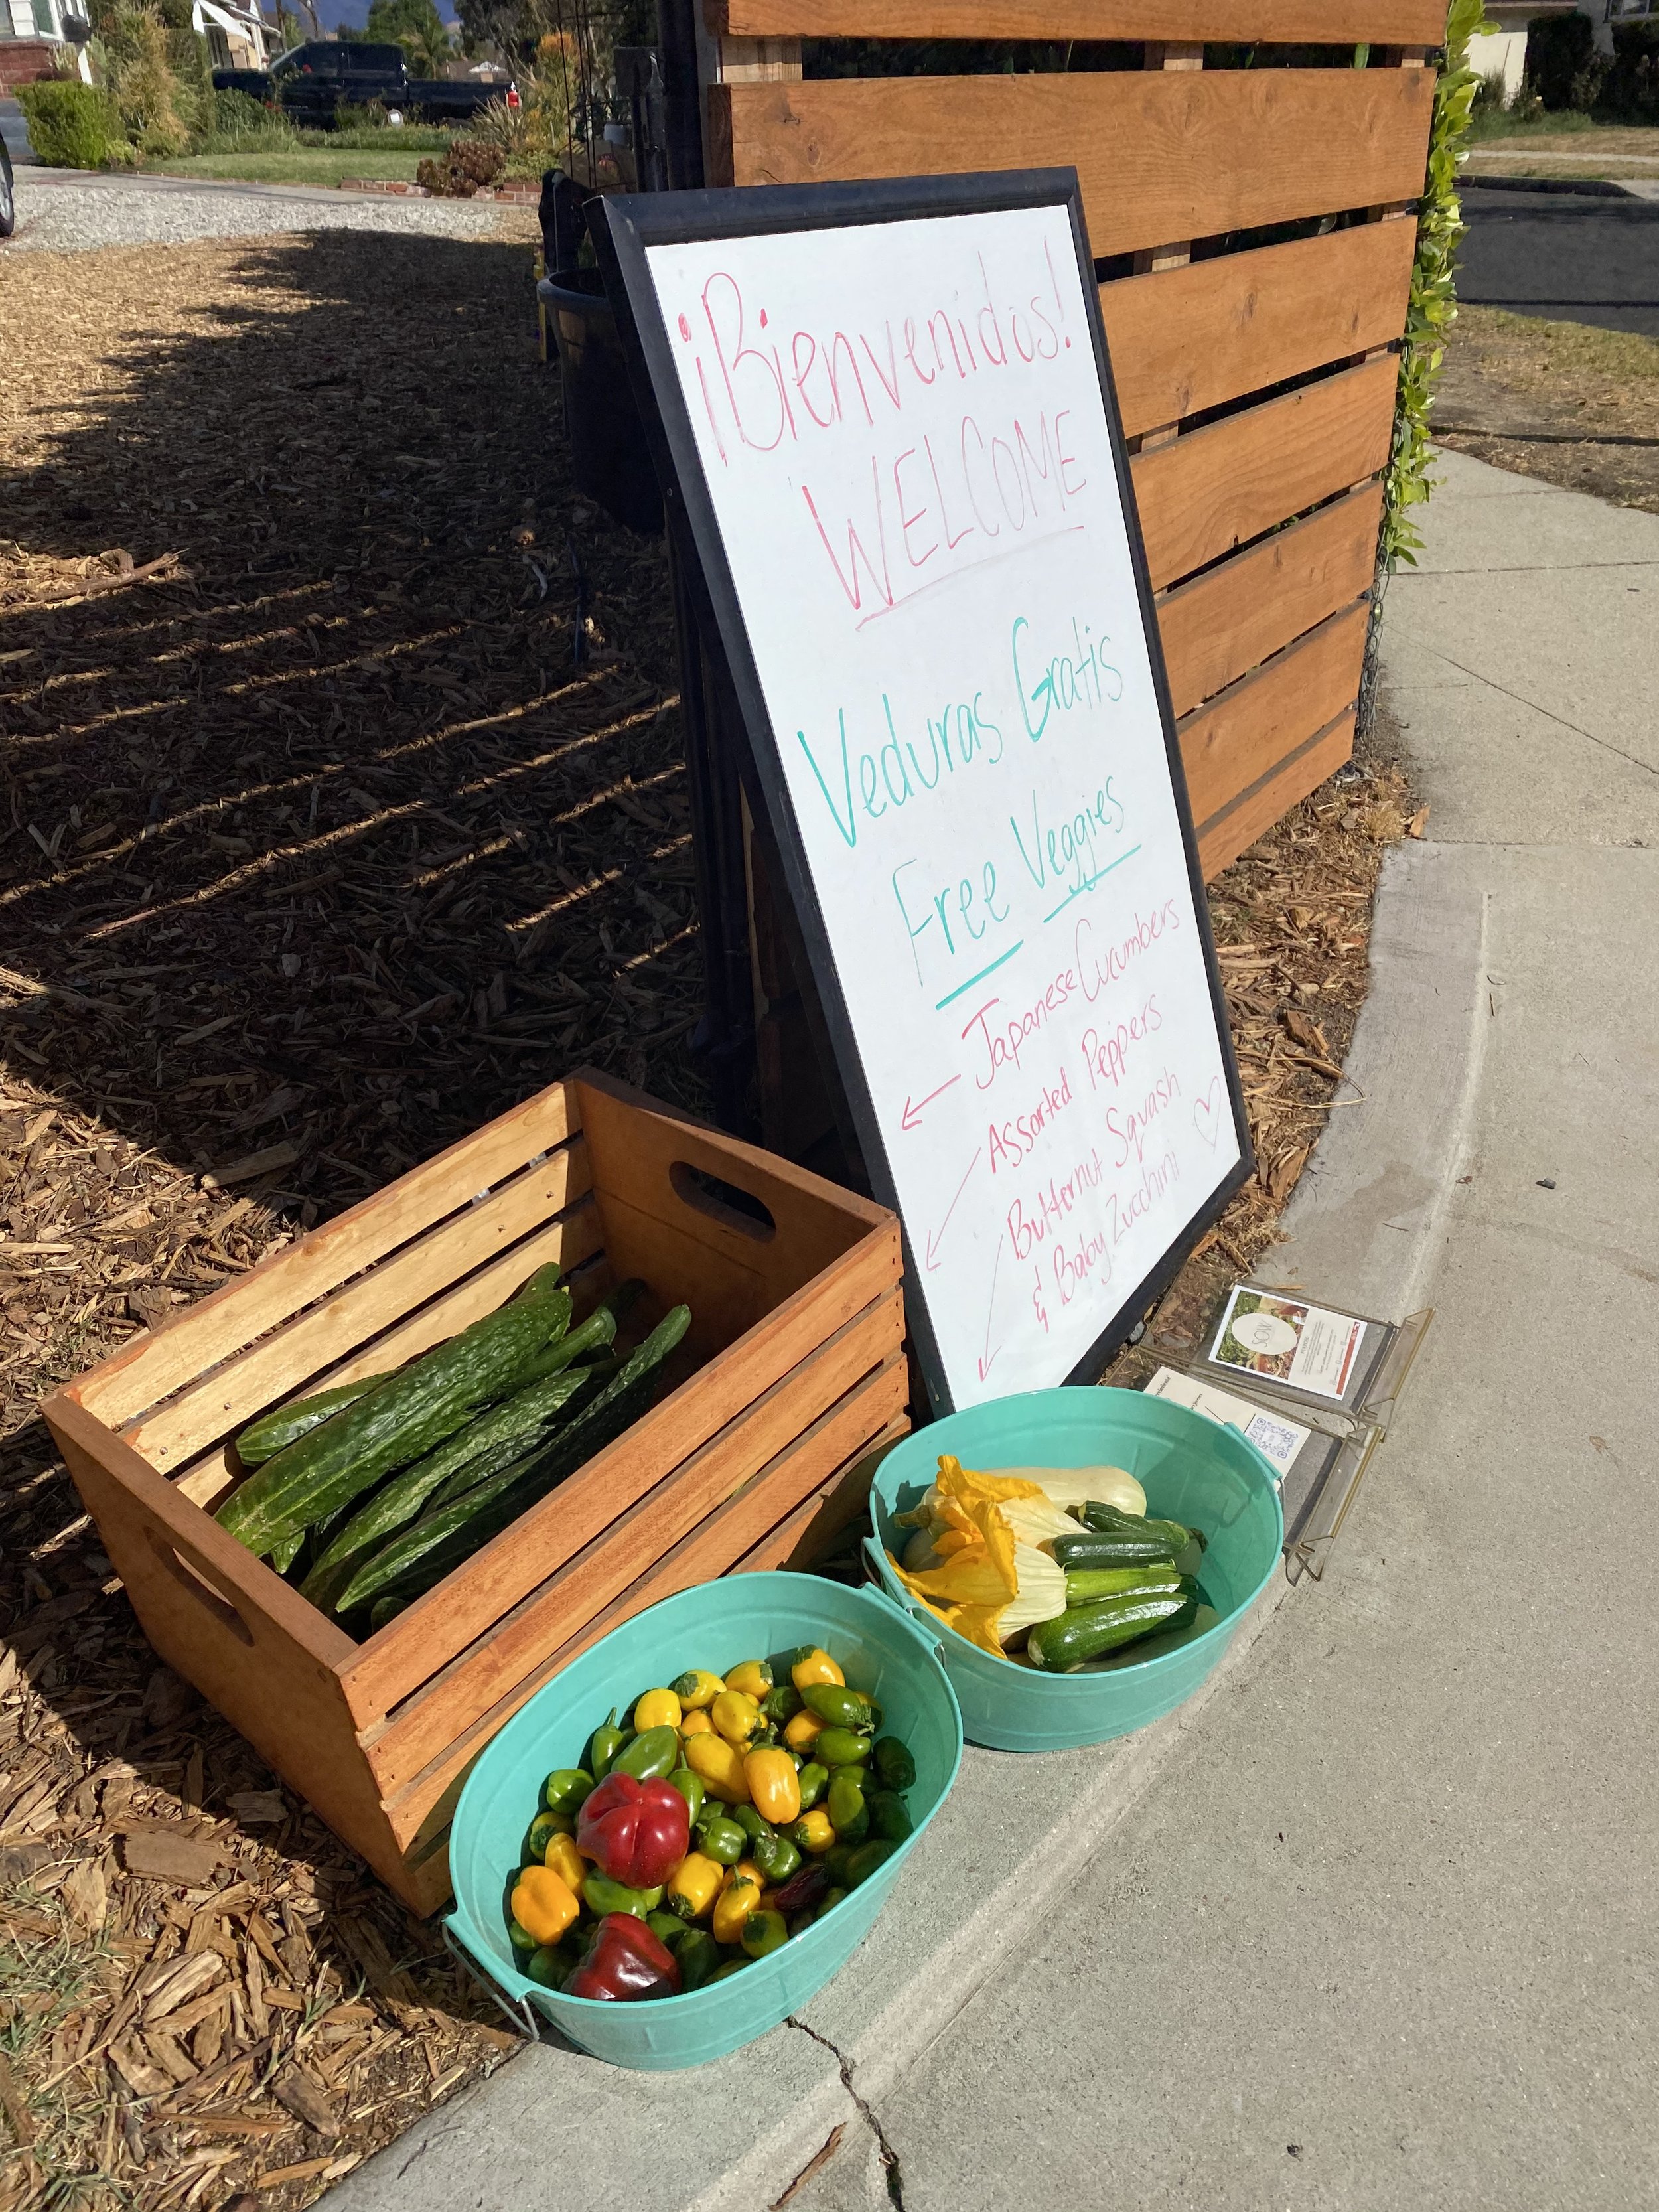 ¡Bienvenidos!
WELCOME
Veduras Gratis
Free Veggies
Japanese Cucumbers
Assorted Peppers
Butternut Squash
& Baby Zucchini
SOW